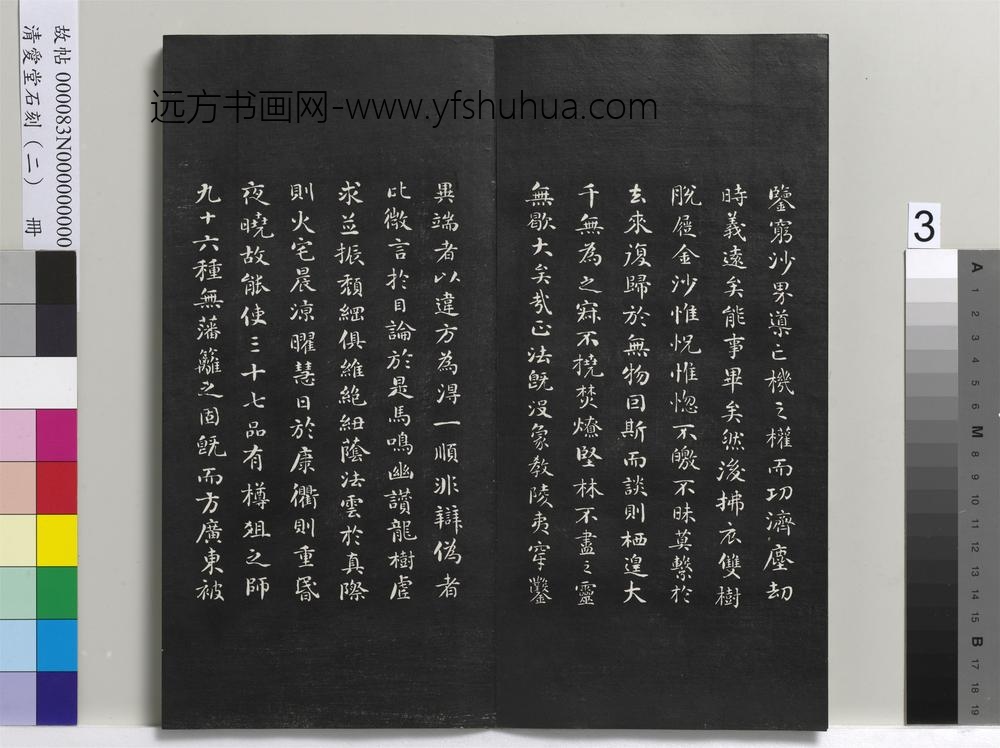 故帖 000083N000000000
清愛堂石刻（二） 冊
远方书画网-www.yfshuhua.com
3
鑒窮沙界導亡機之權而功濟塵劫
時義遠矣能事畢矣然後拂衣雙樹
脫屣金沙惟怳惟惚不皦不昧莫繫於
去來復歸於無物因斯而談則栖遑大
千無為之寂不撓焚燎堅林不盡之靈
無歇大矣哉正法既沒象教陵夷穿鑿
異端者以違方為得一順非辯偽者
比微言於目論於是馬鳴幽讚龍樹虛
求並振頹綱俱維絕紐蔭法雲於真際
則火宅晨涼曜慧日於康衢則重昏
夜曉故能使三十七品有樽俎之師
九十六種無藩籬之固既而方廣東被
A 1 2 3 4 5 6 M 8 9 10 11 12 13 14 15 B 17 18 19